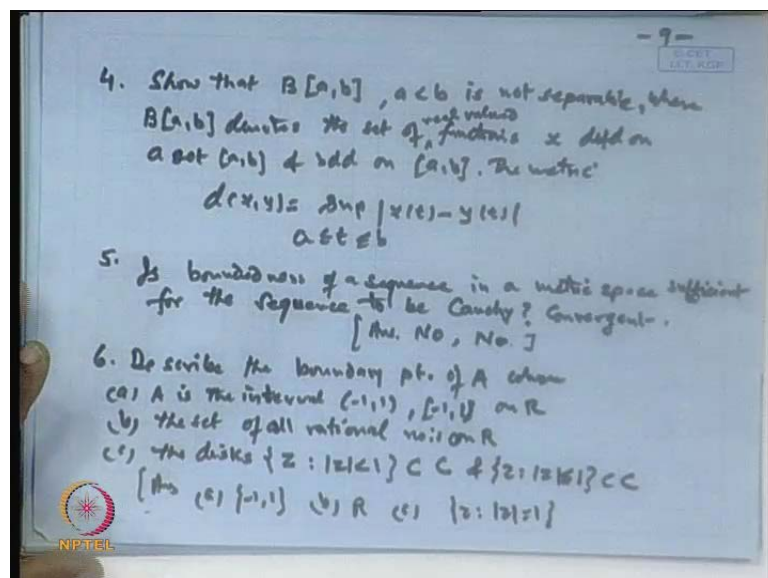 - 9 -
C CET
I.I.T. KGP
4. Show that B[a,b], a<b is not separable, where
real valued
B[a,b] denotes the set of ‸ functions x defd on
a set [a,b] & bdd on [a,b]. The metric
d(x,y) = Sup |x(t) - y(t)|
a≤t≤b
5. Is boundedness of a sequence in a metric space sufficient
for the sequence to be Cauchy? Convergent.
[Ans. No, No.]
6. Describe the boundary pt. of A when
(a) A is the interval (-1,1), [-1,1] on R
(b) the set of all rational nois on R
(c) the disks {z : |z|<1} ⊂ C & {z: |z|≤1} ⊂ C
[Ans (a) {-1,1} (b) R (c) {z: |z|=1}
NPTEL